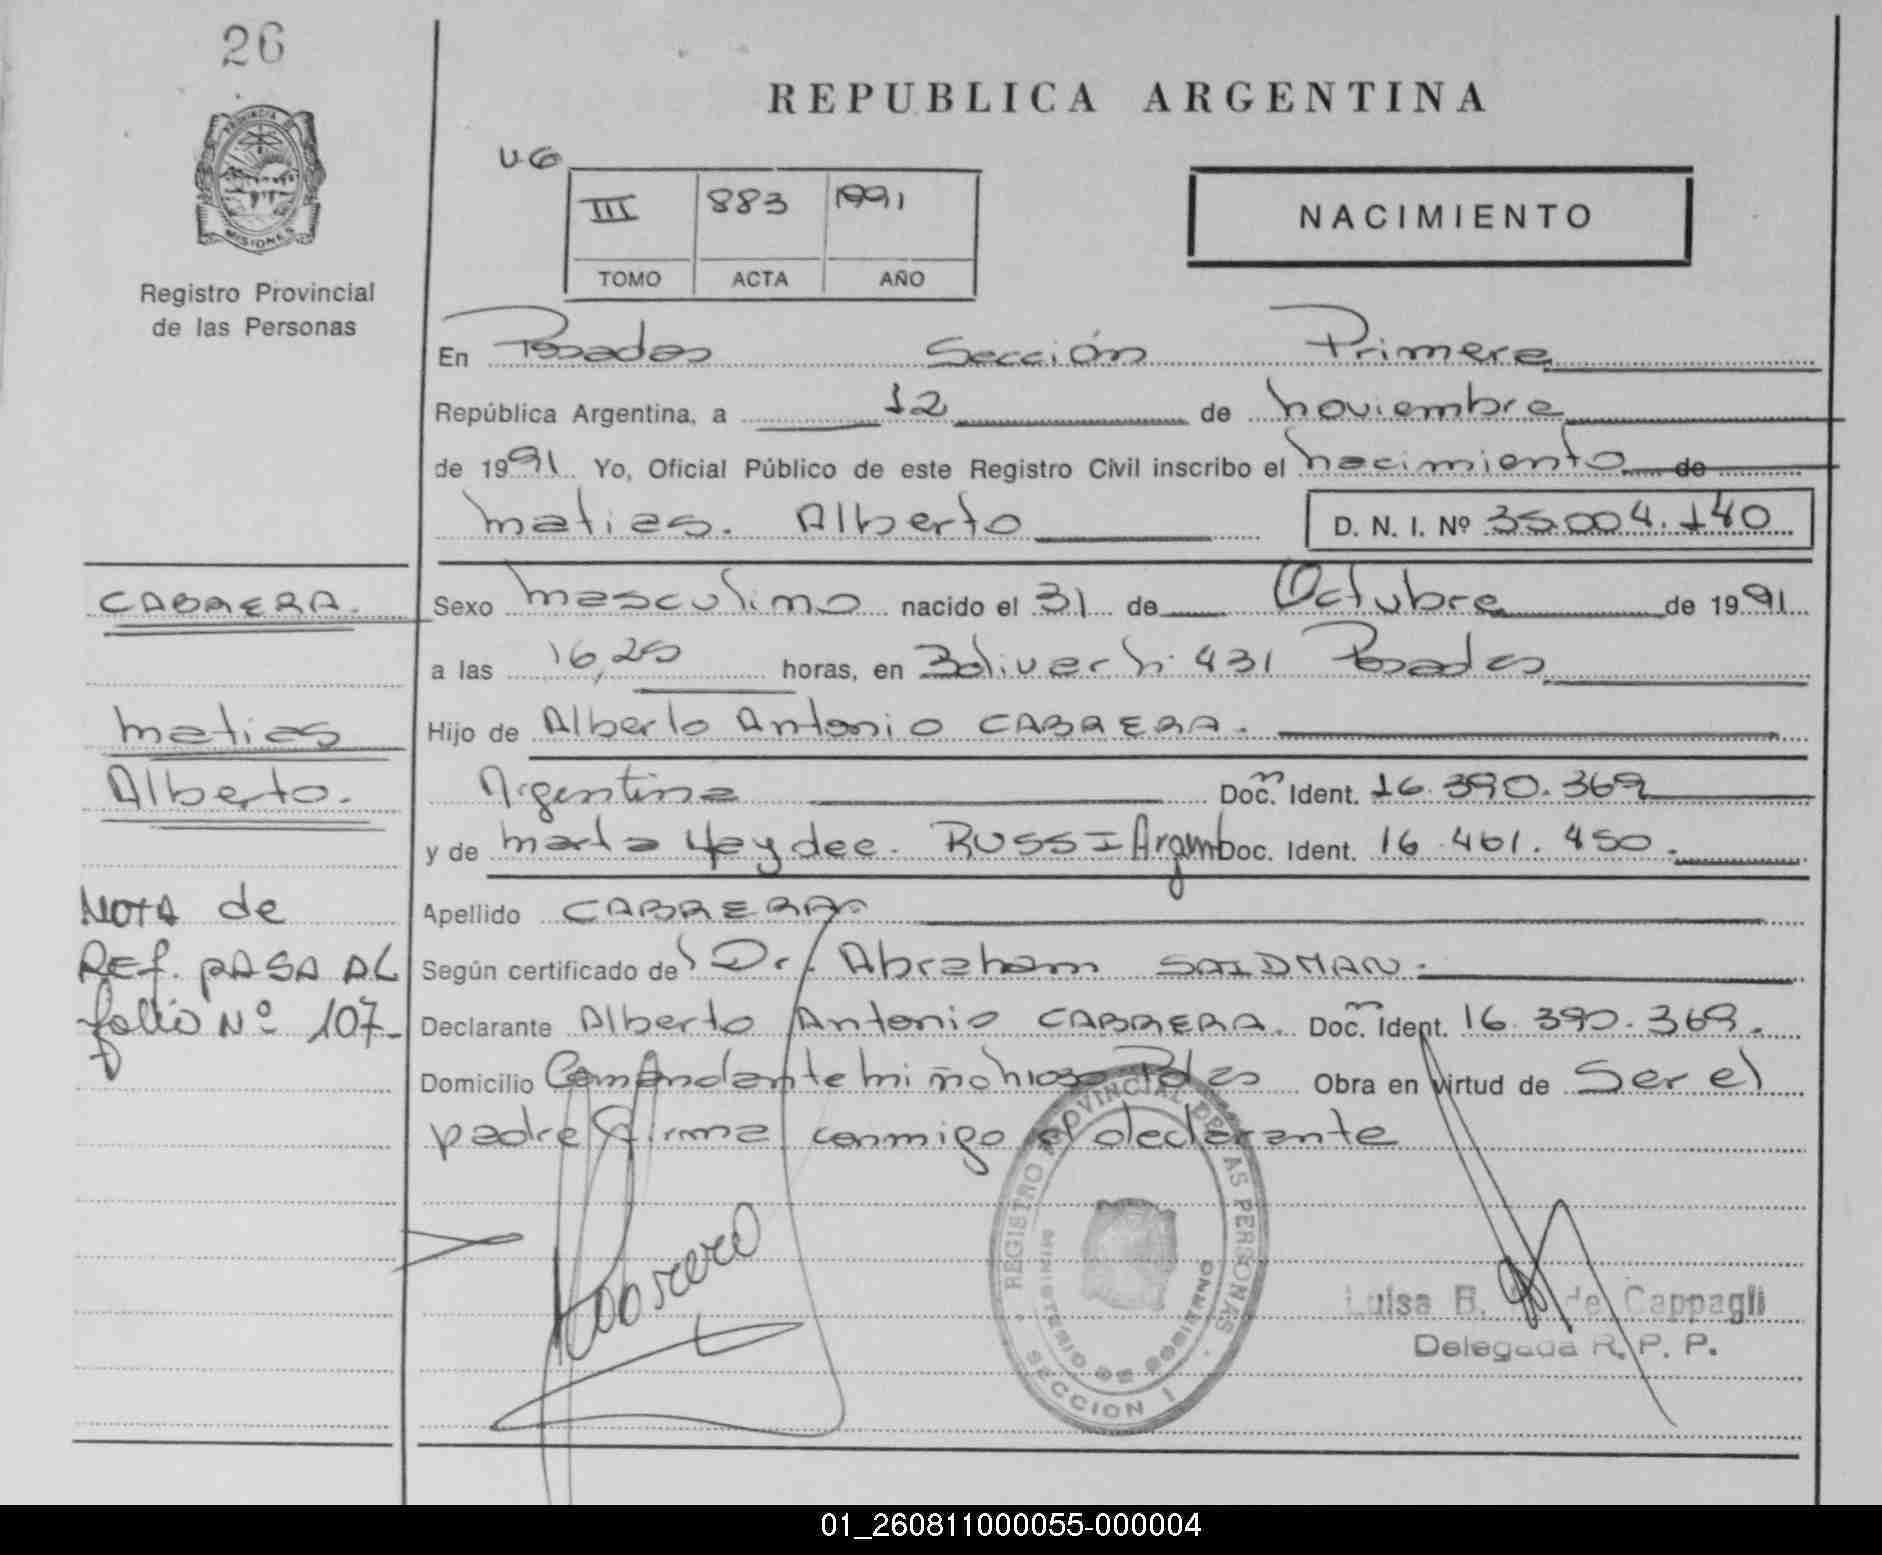 26
REPUBLICA ARGENTINA
PROVINCIA DE
MISIONES
Registro Provincial
de las Personas
UG
III 883 1991
TOMO ACTA AÑO
NACIMIENTO
En Posadas Sección Primera
República Argentina, a 12 de noviembre
de 1991 Yo, Oficial Público de este Registro Civil inscribo el nacimiento de
Matias. Alberto D. N. I. Nº 35.004.140
CABRERA.
Sexo masculino nacido el 31 de Octubre de 1991
a las 16,25 horas, en Bolivar N. 431 Posadas
Matias
Hijo de Alberto Antonio CABRERA.
Alberto.
Argentina Doc. Ident. 16.390.369
y de Marta Haydee. RUSSI Doc. Ident. 16.461.450.
NOTA de
Apellido CABRERA.
REf. PASA AL
Según certificado del Dr. Abraham SAIDMAN.
folio Nº 107-
Declarante Alberto Antonio CABRERA. Doc. Ident. 16.390.369.
Domicilio Comandante Obra en virtud de Ser el
padre firma conmigo el declarante
REGISTRO PROVINCIAL DE LAS PERSONAS
MINISTERIO DE GOBIERNO
SECCION 1
Cabrera
Luisa B. de Cappagli
Delegada R. P. P.
01_260811000055-000004